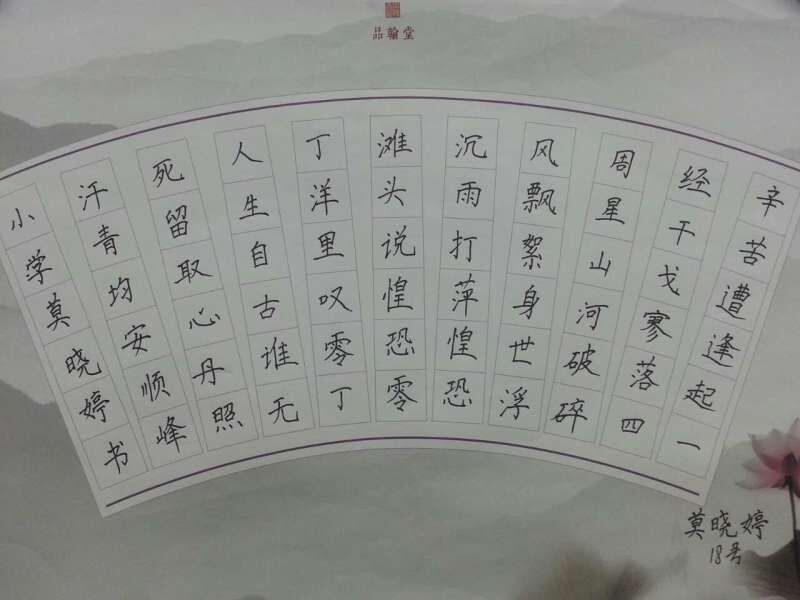 品翰堂
辛苦遭逢起一
经干戈寥落四
周星山河破碎
风飘絮身世浮
沉雨打萍惶恐
滩头说惶恐零
丁洋里叹零丁
人生自古谁无
死留取心丹照
汗青均安顺峰
小学莫晓婷书
莫晓婷
18号